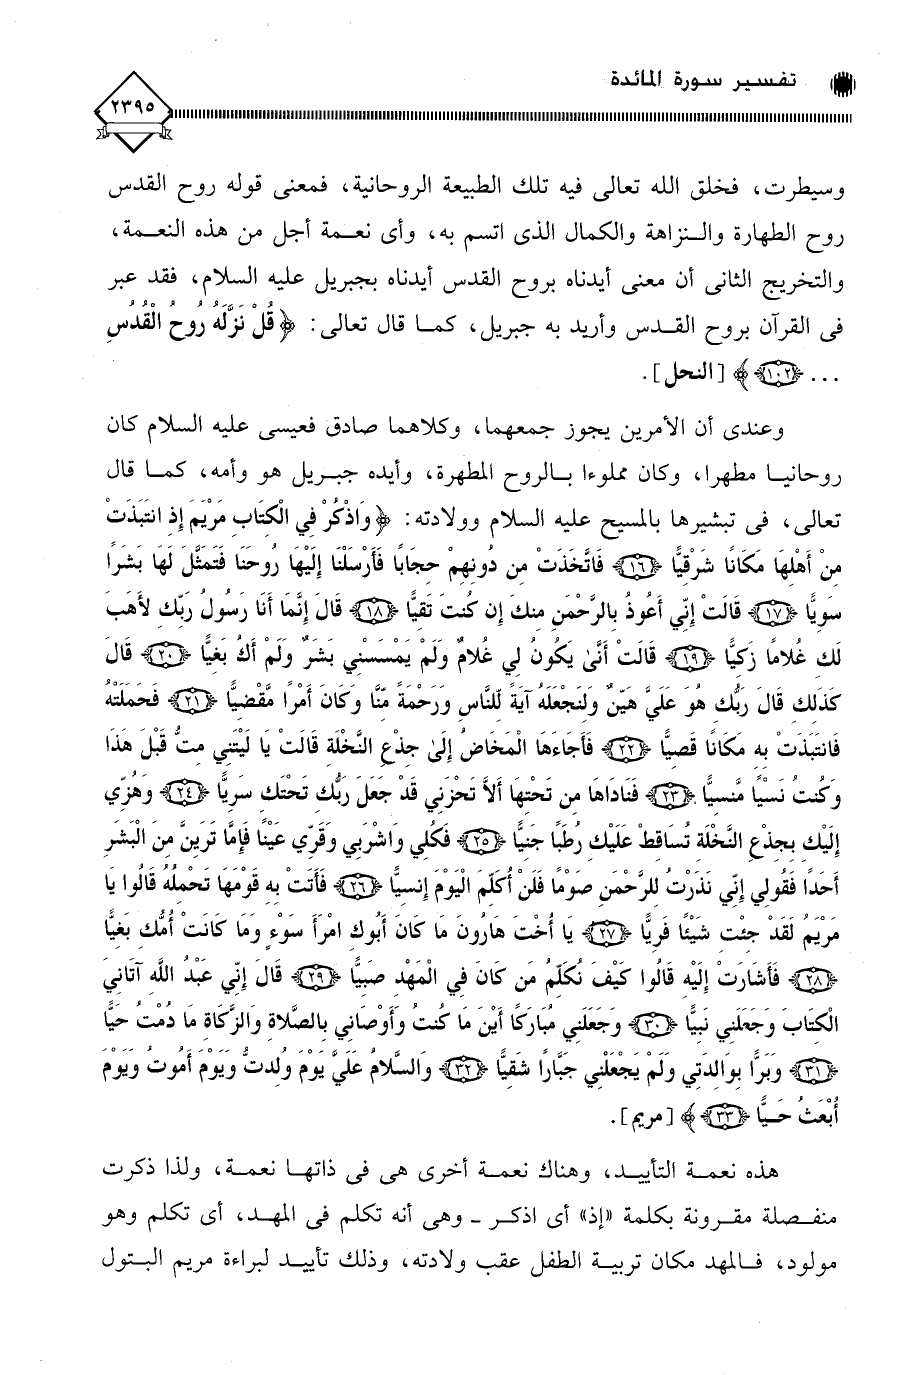 تفسير سورة المائدة
٢٣٩٥
وسيطرت، فخلق الله تعالى فيه تلك الطبيعة الروحانية، فمعنى قوله روح القدس
روح الطهارة والنزاهة والكمال الذى اتسم به، وأى نعمة أجل من هذه النعمة،
والتخريج الثانى أن معنى أيدناه بروح القدس أيدناه بجبريل عليه السلام، فقد عبر
فى القرآن بروح القدس وأريد به جبريل، كما قال تعالى: ﴿قُلْ نَزَّلَهُ رُوحُ الْقُدُسِ
... ﴿١٠٢﴾﴾ [النحل].
وعندى أن الأمرين يجوز جمعهما، وكلاهما صادق فعيسى عليه السلام كان
روحانيا مطهرا، وكان مملوءا بالروح المطهرة، وأيده جبريل هو وأمه، كما قال
تعالى، فى تبشيرها بالمسيح عليه السلام وولادته: ﴿وَاذْكُرْ فِي الْكِتَابِ مَرْيَمَ إِذِ انتَبَذَتْ
مِنْ أَهْلِهَا مَكَانًا شَرْقِيًّا ﴿١٦﴾ فَاتَّخَذَتْ مِن دُونِهِمْ حِجَابًا فَأَرْسَلْنَا إِلَيْهَا رُوحَنَا فَتَمَثَّلَ لَهَا بَشَرًا
سَوِيًّا ﴿١٧﴾ قَالَتْ إِنِّي أَعُوذُ بِالرَّحْمَنِ مِنكَ إِن كُنتَ تَقِيًّا ﴿١٨﴾ قَالَ إِنَّمَا أَنَا رَسُولُ رَبِّكِ لِأَهَبَ
لَكِ غُلامًا زَكِيًّا ﴿١٩﴾ قَالَتْ أَنَّىٰ يَكُونُ لِي غُلامٌ وَلَمْ يَمْسَسْنِي بَشَرٌ وَلَمْ أَكُ بَغِيًّا ﴿٢٠﴾ قَالَ
كَذَلِكِ قَالَ رَبُّكِ هُوَ عَلَيَّ هَيِّنٌ وَلِنَجْعَلَهُ آيَةً لِّلنَّاسِ وَرَحْمَةً مِّنَّا وَكَانَ أَمْرًا مَّقْضِيًّا ﴿٢١﴾ فَحَمَلَتْهُ
فَانتَبَذَتْ بِهِ مَكَانًا قَصِيًّا ﴿٢٢﴾ فَأَجَاءَهَا الْمَخَاضُ إِلَىٰ جِذْعِ النَّخْلَةِ قَالَتْ يَا لَيْتَنِي مِتُّ قَبْلَ هَذَا
وَكُنتُ نَسْيًا مَّنسِيًّا ﴿٢٣﴾ فَنَادَاهَا مِن تَحْتِهَا أَلاَّ تَحْزَنِي قَدْ جَعَلَ رَبُّكِ تَحْتَكِ سَرِيًّا ﴿٢٤﴾ وَهُزِّي
إِلَيْكِ بِجِذْعِ النَّخْلَةِ تُسَاقِطْ عَلَيْكِ رُطَبًا جَنِيًّا ﴿٢٥﴾ فَكُلِي وَاشْرَبِي وَقَرِّي عَيْنًا فَإِمَّا تَرَيِنَّ مِنَ الْبَشَرِ
أَحَدًا فَقُولِي إِنِّي نَذَرْتُ لِلرَّحْمَنِ صَوْمًا فَلَنْ أُكَلِّمَ الْيَوْمَ إِنسِيًّا ﴿٢٦﴾ فَأَتَتْ بِهِ قَوْمَهَا تَحْمِلُهُ قَالُوا يَا
مَرْيَمُ لَقَدْ جِئْتِ شَيْئًا فَرِيًّا ﴿٢٧﴾ يَا أُخْتَ هَارُونَ مَا كَانَ أَبُوكِ امْرَأَ سَوْءٍ وَمَا كَانَتْ أُمُّكِ بَغِيًّا
﴿٢٨﴾ فَأَشَارَتْ إِلَيْهِ قَالُوا كَيْفَ نُكَلِّمُ مَن كَانَ فِي الْمَهْدِ صَبِيًّا ﴿٢٩﴾ قَالَ إِنِّي عَبْدُ اللَّهِ آتَانِيَ
الْكِتَابَ وَجَعَلَنِي نَبِيًّا ﴿٣٠﴾ وَجَعَلَنِي مُبَارَكًا أَيْنَ مَا كُنتُ وَأَوْصَانِي بِالصَّلاةِ وَالزَّكَاةِ مَا دُمْتُ حَيًّا
﴿٣١﴾ وَبَرًّا بِوَالِدَتِي وَلَمْ يَجْعَلْنِي جَبَّارًا شَقِيًّا ﴿٣٢﴾ وَالسَّلامُ عَلَيَّ يَوْمَ وُلِدتُّ وَيَوْمَ أَمُوتُ وَيَوْمَ
أُبْعَثُ حَيًّا ﴿٣٣﴾﴾ [مريم].
هذه نعمة التأييد، وهناك نعمة أخرى هى فى ذاتها نعمة، ولذا ذكرت
منفصلة مقرونة بكلمة «إذ» أى اذكر ـ وهى أنه تكلم فى المهد، أى تكلم وهو
مولود، فالمهد مكان تربية الطفل عقب ولادته، وذلك تأييد لبراءة مريم البتول